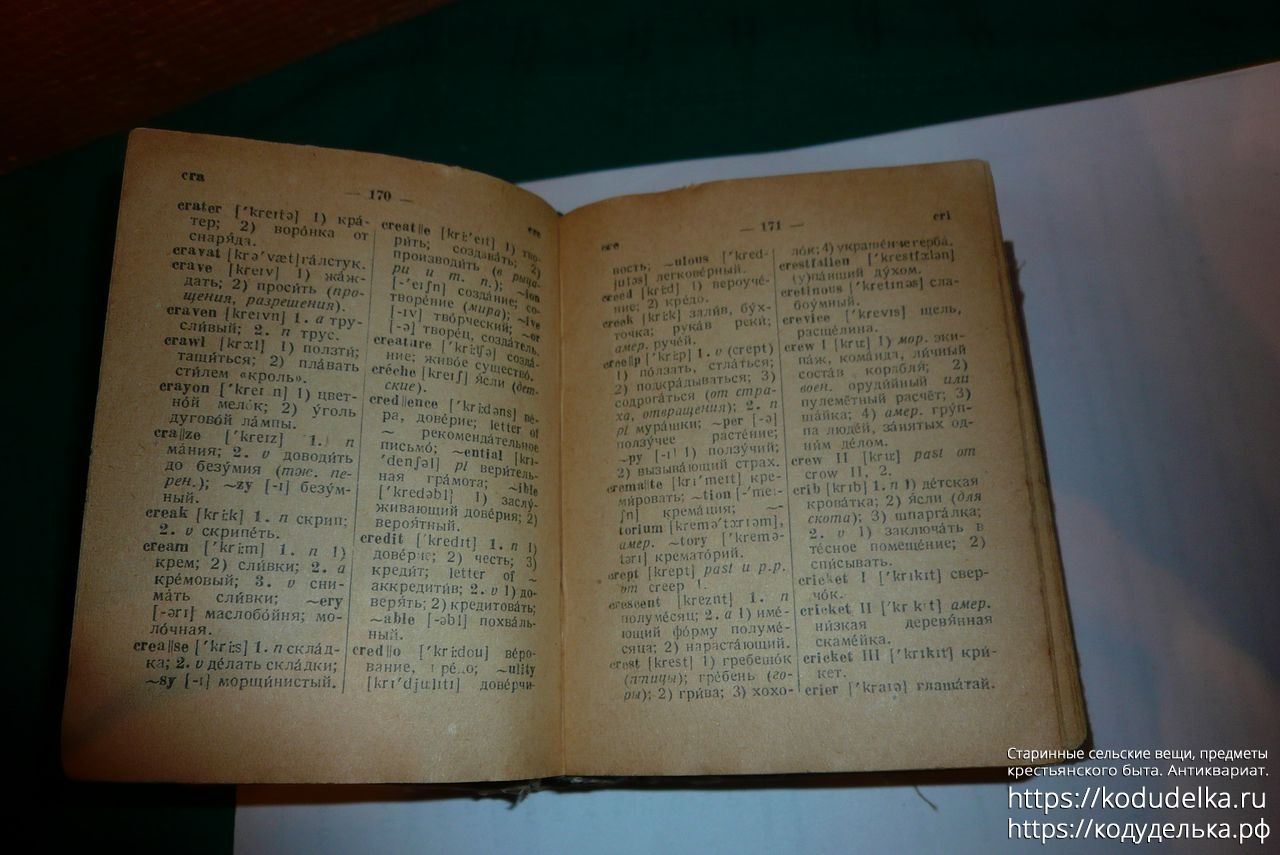 cra
— 170 —
cre
crater ['kreɪtə] 1) крá-
тер; 2) ворóнка от
снаря́да.
cravat [krə'væt] гáлстук.
crave [kreɪv] 1) жáж-
дать; 2) проси́ть (про-
щения, разрешения).
craven [kreɪvn] 1. a тру-
сли́вый; 2. n трус.
crawl [krɔ:l] 1) ползти́;
тащи́ться; 2) плáвать
сти́лем «кроль».
crayon ['kreɪ n] 1) цвет-
нóй мелóк; 2) ýголь
дуговóй лáмпы.
cra||ze ['kreɪz] 1. n
мáния; 2. v доводи́ть
до безýмия (тж. пе-
рен.); ~zy [-ɪ] безýм-
ный.
creak [kri:k] 1. n скрип;
2. v скрипéть.
cream ['kri:m] 1. n 1)
крем; 2) сли́вки; 2. a
крéмовый; 3. v сни-
мáть сли́вки; ~ery
[-ərɪ] маслобóйня; мо-
лóчная.
crea||se ['kri:s] 1. n склáд-
ка; 2. v дéлать склáдки;
~sy [-ɪ] морщи́нистый.
creat||e [kri:'eɪt] 1) тво-
ри́ть; создавáть; 2)
производи́ть (в рыца-
ри и т. п.); ~ion
[-'eɪʃn] создáние; со-
творéние (мира); ~ive
[-ɪv] твóрческий; ~or
[-ə] творéц, создáтель.
creature ['kri:tʃə] создá-
ние; живóе существó.
crèche [kreɪʃ] я́сли (дет-
ские).
cred||ence ['kri:dəns] вé-
ра, довéрие; letter of
~ рекомендáтельное
письмó; ~ential [krɪ-
'denʃəl] pl вери́тель-
ная грáмота; ~ible
['kredəbl] 1) заслý-
живающий довéрия; 2)
вероя́тный.
credit ['kredɪt] 1. n 1)
довéрие; 2) честь; 3)
креди́т; letter of ~
аккредити́в; 2. v 1) до-
веря́ть; 2) кредитовáть;
~able [-əbl] похвáль-
ный.
cred||o ['kri:dou] вéро-
вание, крéдо; ~ulity
[krɪ'dju:lɪtɪ] довéрчи-
cre
— 171 —
cri
вость; ~ulous ['kred-
juləs] легковéрный.
creed [kri:d] 1) вероучé-
ние; 2) крéдо.
creek [kri:k] зали́в, бýх-
точка; рукáв реки́;
амер. ручéй.
cree||p ['kri:p] 1. v (crept)
1) пóлзать, стлáться;
2) подкрáдываться; 3)
содрогáться (от стра-
ха, отвращения); 2. n
pl мурáшки; ~per [-ə]
ползýчее растéние;
~py [-ɪ] 1) ползýчий;
2) вызывáющий страх.
crema||te [krɪ'meɪt] кре-
ми́ровать; ~tion [-'meɪ-
ʃn] кремáция; ~-
torium [kremə'tɔ:rɪəm],
амер. ~tory ['kremə-
tərɪ] крематóрий.
crept [krept] past и p.p.
от creep 1.
crescent [kreznt] 1. n
полумéсяц; 2. a 1) имé-
ющий фóрму полумé-
сяца; 2) нарастáющий.
crest [krest] 1) гребешóк
(птицы); грéбень (го-
ры); 2) гри́ва; 3) хохо-
лóк; 4) украшéние гербá.
crestfallen ['krestfɔ:lən]
(у)пáвший дýхом.
cretinous ['kretɪnəs] сла-
боýмный.
crevice ['krevɪs] щель,
расщéлина.
crew I [kru:] 1) мор. эки-
пáж, комáнда, ли́чный
состáв корабля́; 2)
воен. оруди́йный или
пулемётный расчёт; 3)
шáйка; 4) амер. грýп-
па людéй, зáнятых од-
ни́м дéлом.
crew II [kru:] past от
crow II, 2.
crib [krɪb] 1. n 1) дéтская
кровáтка; 2) я́сли (для
скота); 3) шпаргáлка;
2. v 1) заключáть в
тéсное помещéние; 2)
спи́сывать.
cricket I ['krɪkɪt] свер-
чóк.
cricket II ['krɪkɪt] амер.
ни́зкая деревя́нная
скамéйка.
cricket III ['krɪkɪt] кри́-
кет.
crier ['kraɪə] глашáтай.
Старинные сельские вещи, предметы
крестьянского быта. Антиквариат.
https://kodudelka.ru
https://кодуделька.рф